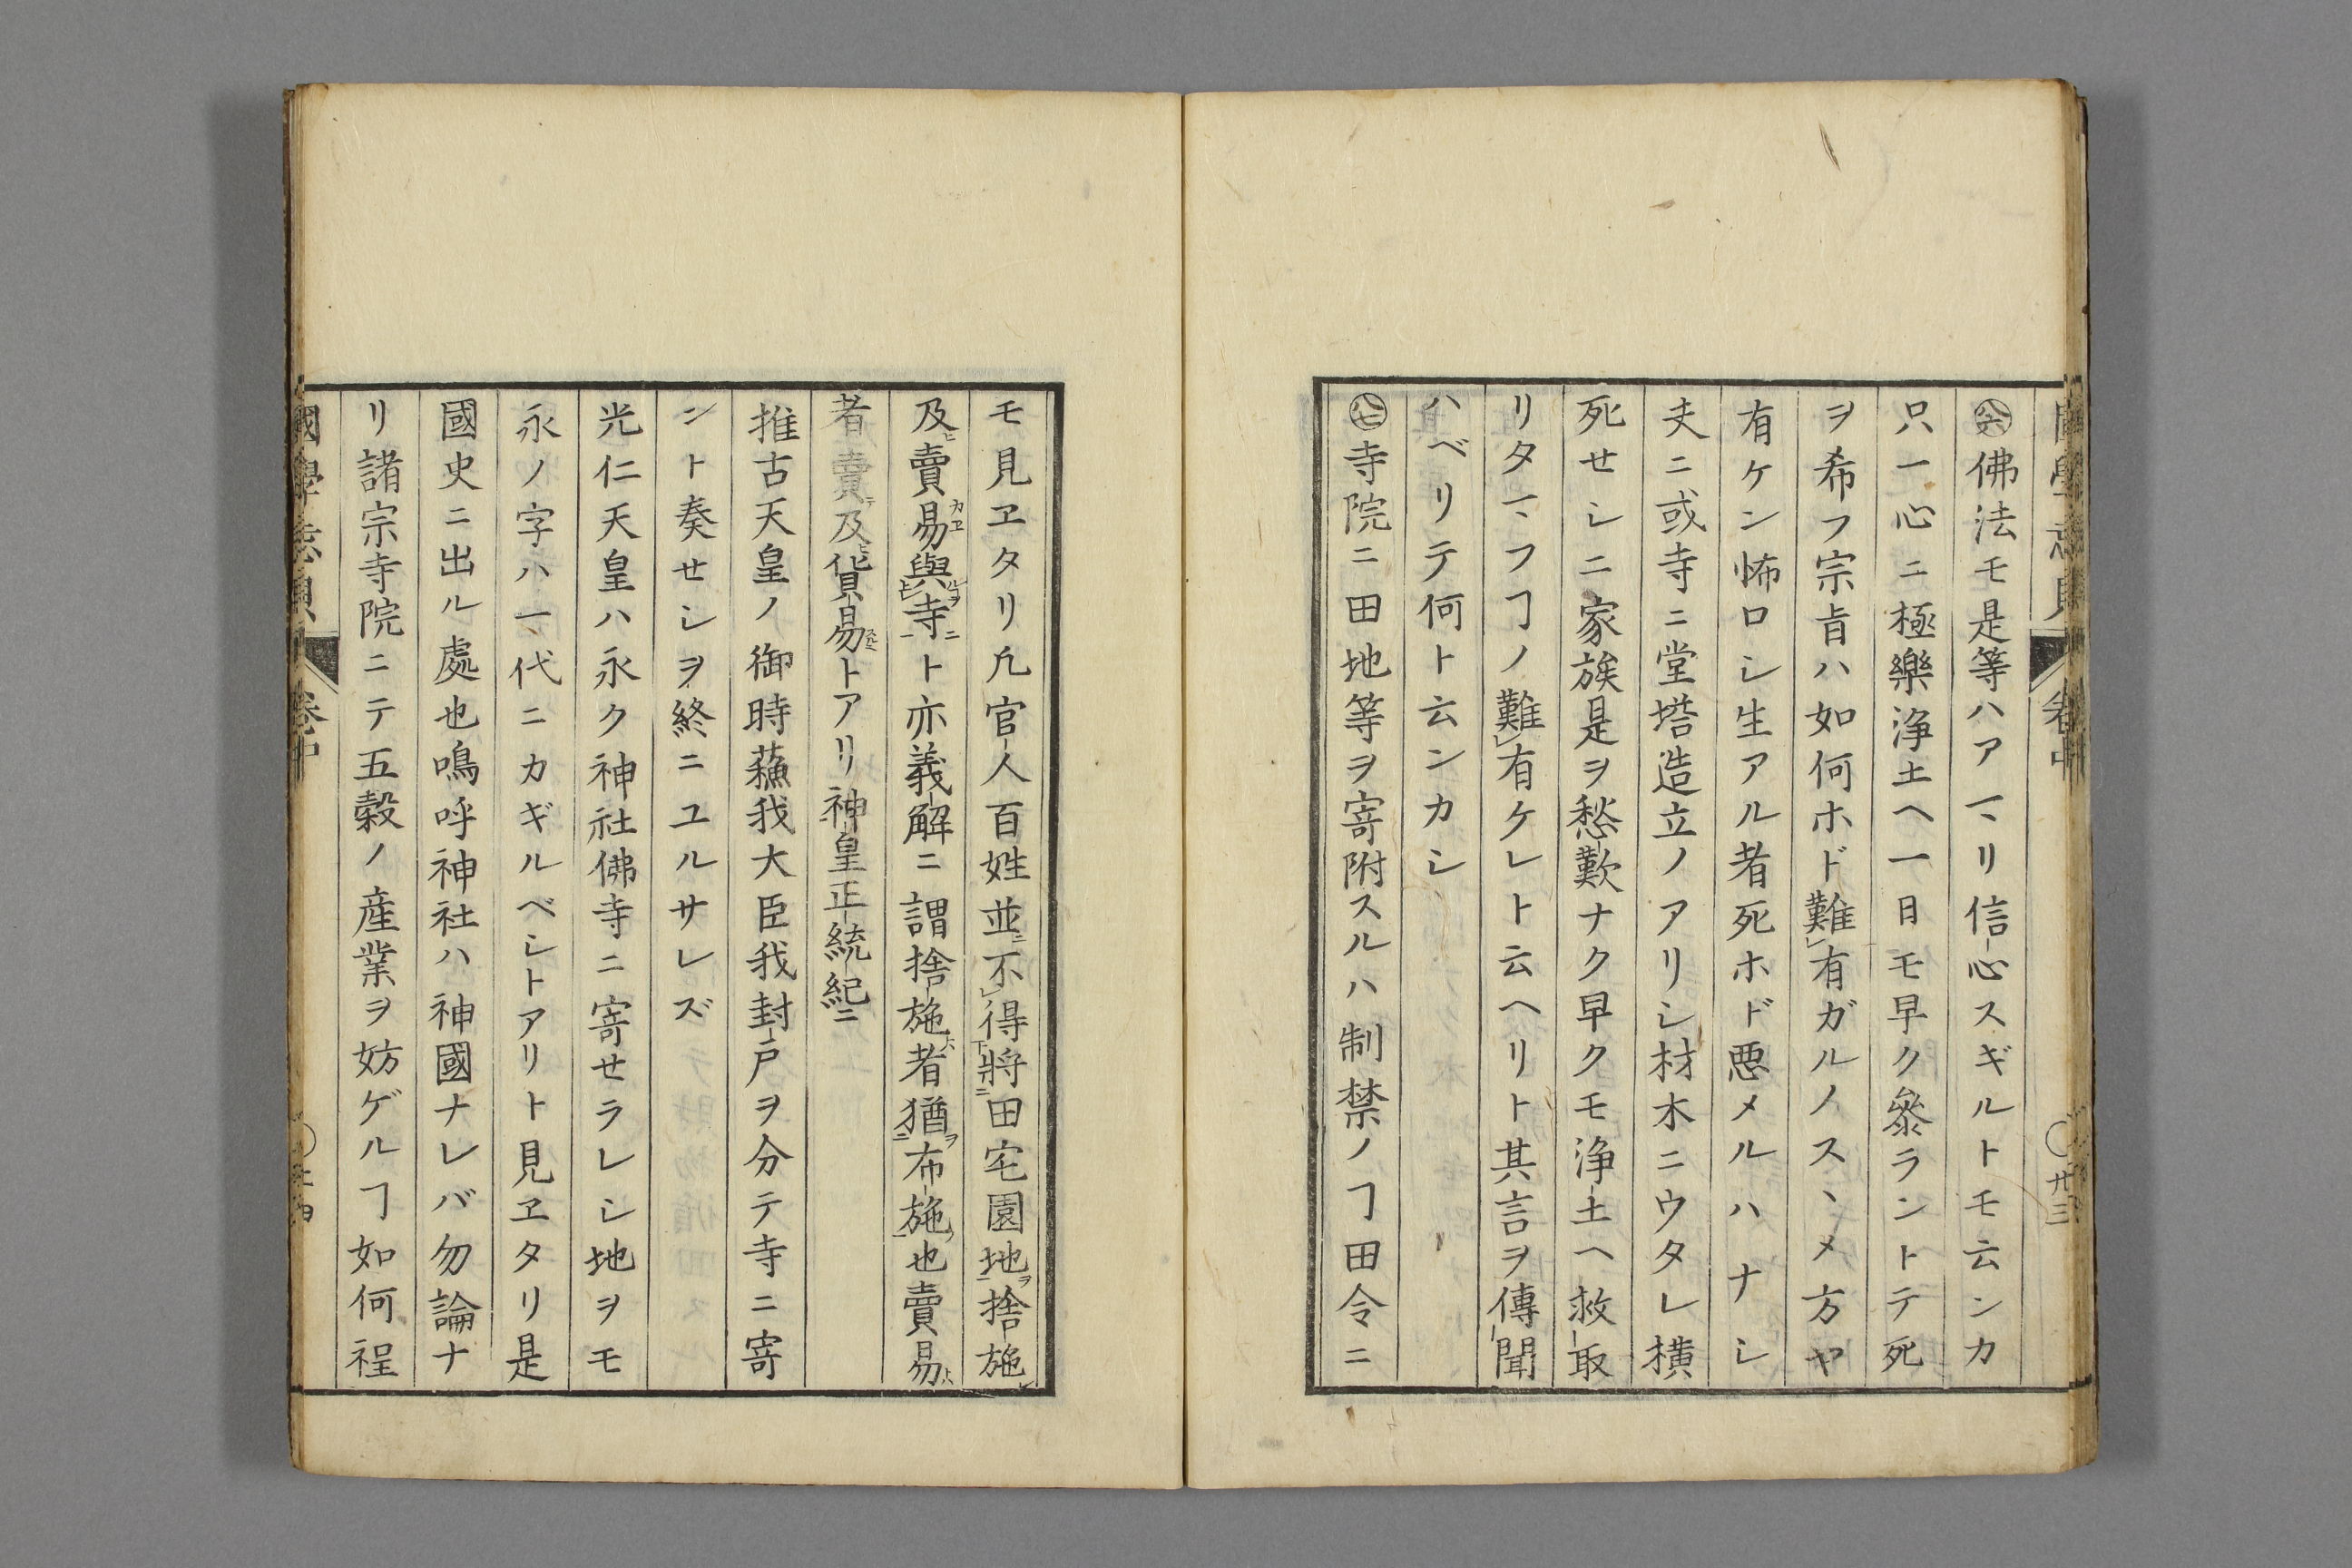 ㊇六佛法モ是等ハアマリ信心スギルトモ云ンカ
只一心ニ極樂浄土ヘ一日モ早ク參ラントテ死
ヲ希フ宗旨ハ如何ホド難レ有ガルノスヽメ方ヤ
有ケン怖ロシ生アル者死ホド惡メルハナシ
夫ニ或寺ニ堂塔造立ノアリシ材木ニウタレ横
死セシニ家族是ヲ愁歎ナク早クモ浄土ヘ救取
リタマフヿノ難レ有ケレト云ヘリト其言ヲ傳聞
ハベリテ何ト云ンカシ
八七寺院ニ田地等ヲ寄附スルハ制禁ノヿ田令ニ
モ見ヱタリ凡官人百姓並ニ不レ得下將ニ田宅園地ヲ一捨施シ
及ヒ賣易カヱ與ルヿヲ寺ニ一ト亦義解ニ謂捨施トハ者猶ヲ二布施ノ一也賣易トハ
者賣テ及ヒ貨易スルニトアリ神皇正統紀ニ
推古天皇ノ御時蘓我大臣我封戸ヲ分テ寺ニ寄
ント奏セシヲ終ニユルサレズ
光仁天皇ハ永ク神社佛寺ニ寄セラレシ地ヲモ
永ノ字ハ一代ニカギルベシトアリト見ヱタリ是
國史ニ出ル處也鳴呼神社ハ神國ナレバ勿論ナ
リ諸宗寺院ニテ五穀ノ産業ヲ妨ゲルヿ如何程
卷中